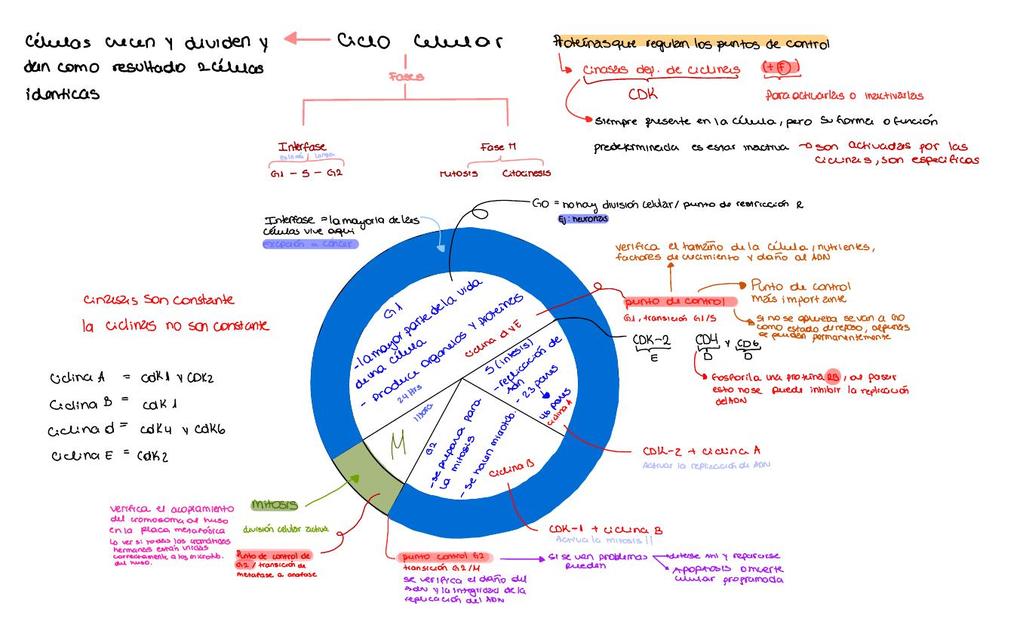 Células crecen y dividen y
dan como resultado 2 células
identicas
Ciclo Celular
Fases
Interfase
G1 - S - G2
Fase M
mitosis
Citocinesis
Proteínas que regulan los puntos de control
cinasas dep. de ciclinas
(+ P)
CDK
Para activarlas o inactivarlas
siempre presente en la célula, pero su forma o función
predeterminada es estar inactiva → son activadas por las
ciclinas, son especificas
Interfase = la mayoria de las
células vive aqui
excepción = cáncer
G0 = no hay división celular / punto de restricción R
Ej: neuronas
verifica el tamaño de la célula, nutrientes,
factores de crecimiento y daño al ADN
punto de control
G1, transición G1/S
Punto de control
más importante
si no se aprueba se van a G0
como estado de reposo, algunas
se pueden permanentemente
CDK-2
E
CD4 y CD6
D D
Fosforila una proteína RB, al pasar
esto no se puede inhibir la replicación
del ADN
cinasas son constante
la ciclinas no son constante
Ciclina A = CdK1 y CDK2
Ciclina B = cdK1
Ciclina d = cdK4 y cdK6
Ciclina E = CdK2
G1
- la mayor parte de la vida
de una célula
- Produce organelos y proteínas
24 Hrs
ciclina d y E
S (intesis)
- replicación de
ADN
- 23 pares
46 pares
ciclina A
G2
- se prepara para
la mitosis
- se hacen microtub.
ciclina B
M
1 hora
CDK-2 + ciclina A
Activar la replicación de ADN
CDK-1 + ciclina B
Activa la mitosis !!
mitosis
división celular activa
verifica el acoplamiento
del cromosoma al huso
en la placa metafásica
lo ver si todas las cromátidas
hermanas están unidas
correctamente a los microtúb.
del huso.
Punto de control de
G2 / transición de
metafase a anafase
punto control G2
transición G2/M
se verifica el daño del
ADN y la integridad de la
replicación del ADN
si se ven problemas
pueden
deterse ahí y repararse
Apoptosis o muerte
celular programada